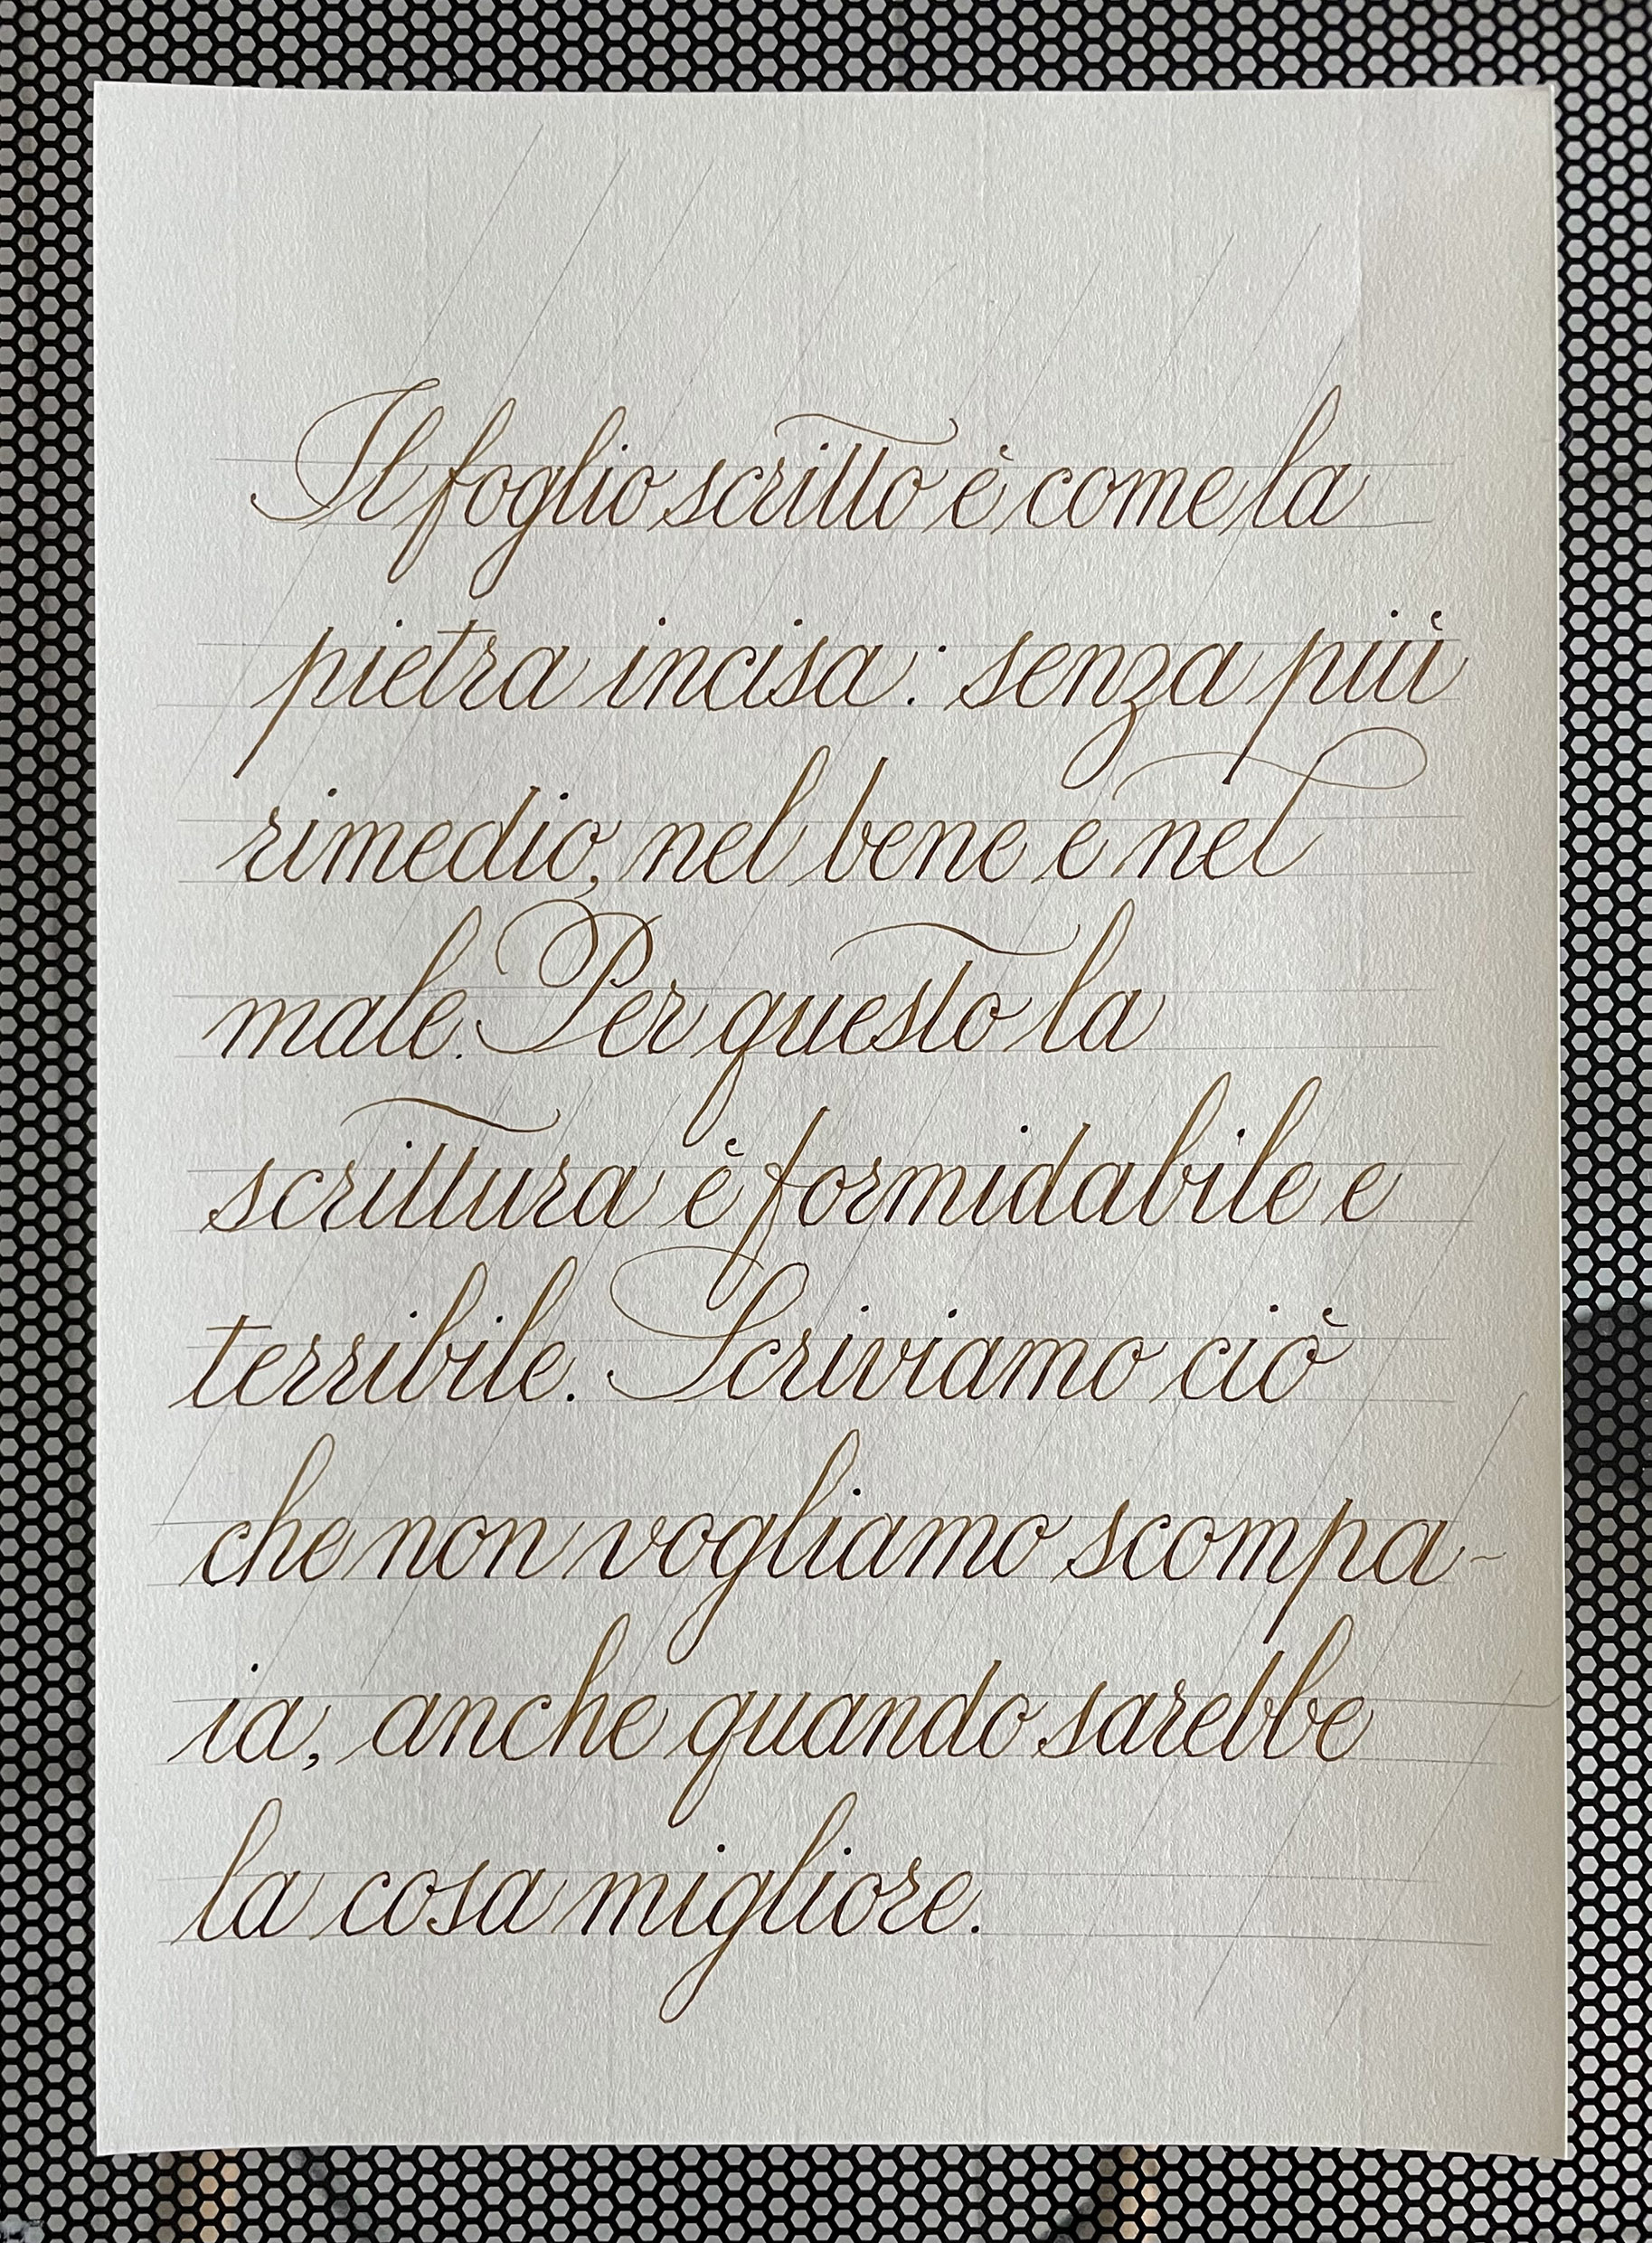 Il foglio scritto è come la
pietra incisa: senza più
rimedio, nel bene e nel
male. Per questo la
scrittura è formidabile e
terribile. Scriviamo ciò
che non vogliamo scompa-
ia, anche quando sarebbe
la cosa migliore.